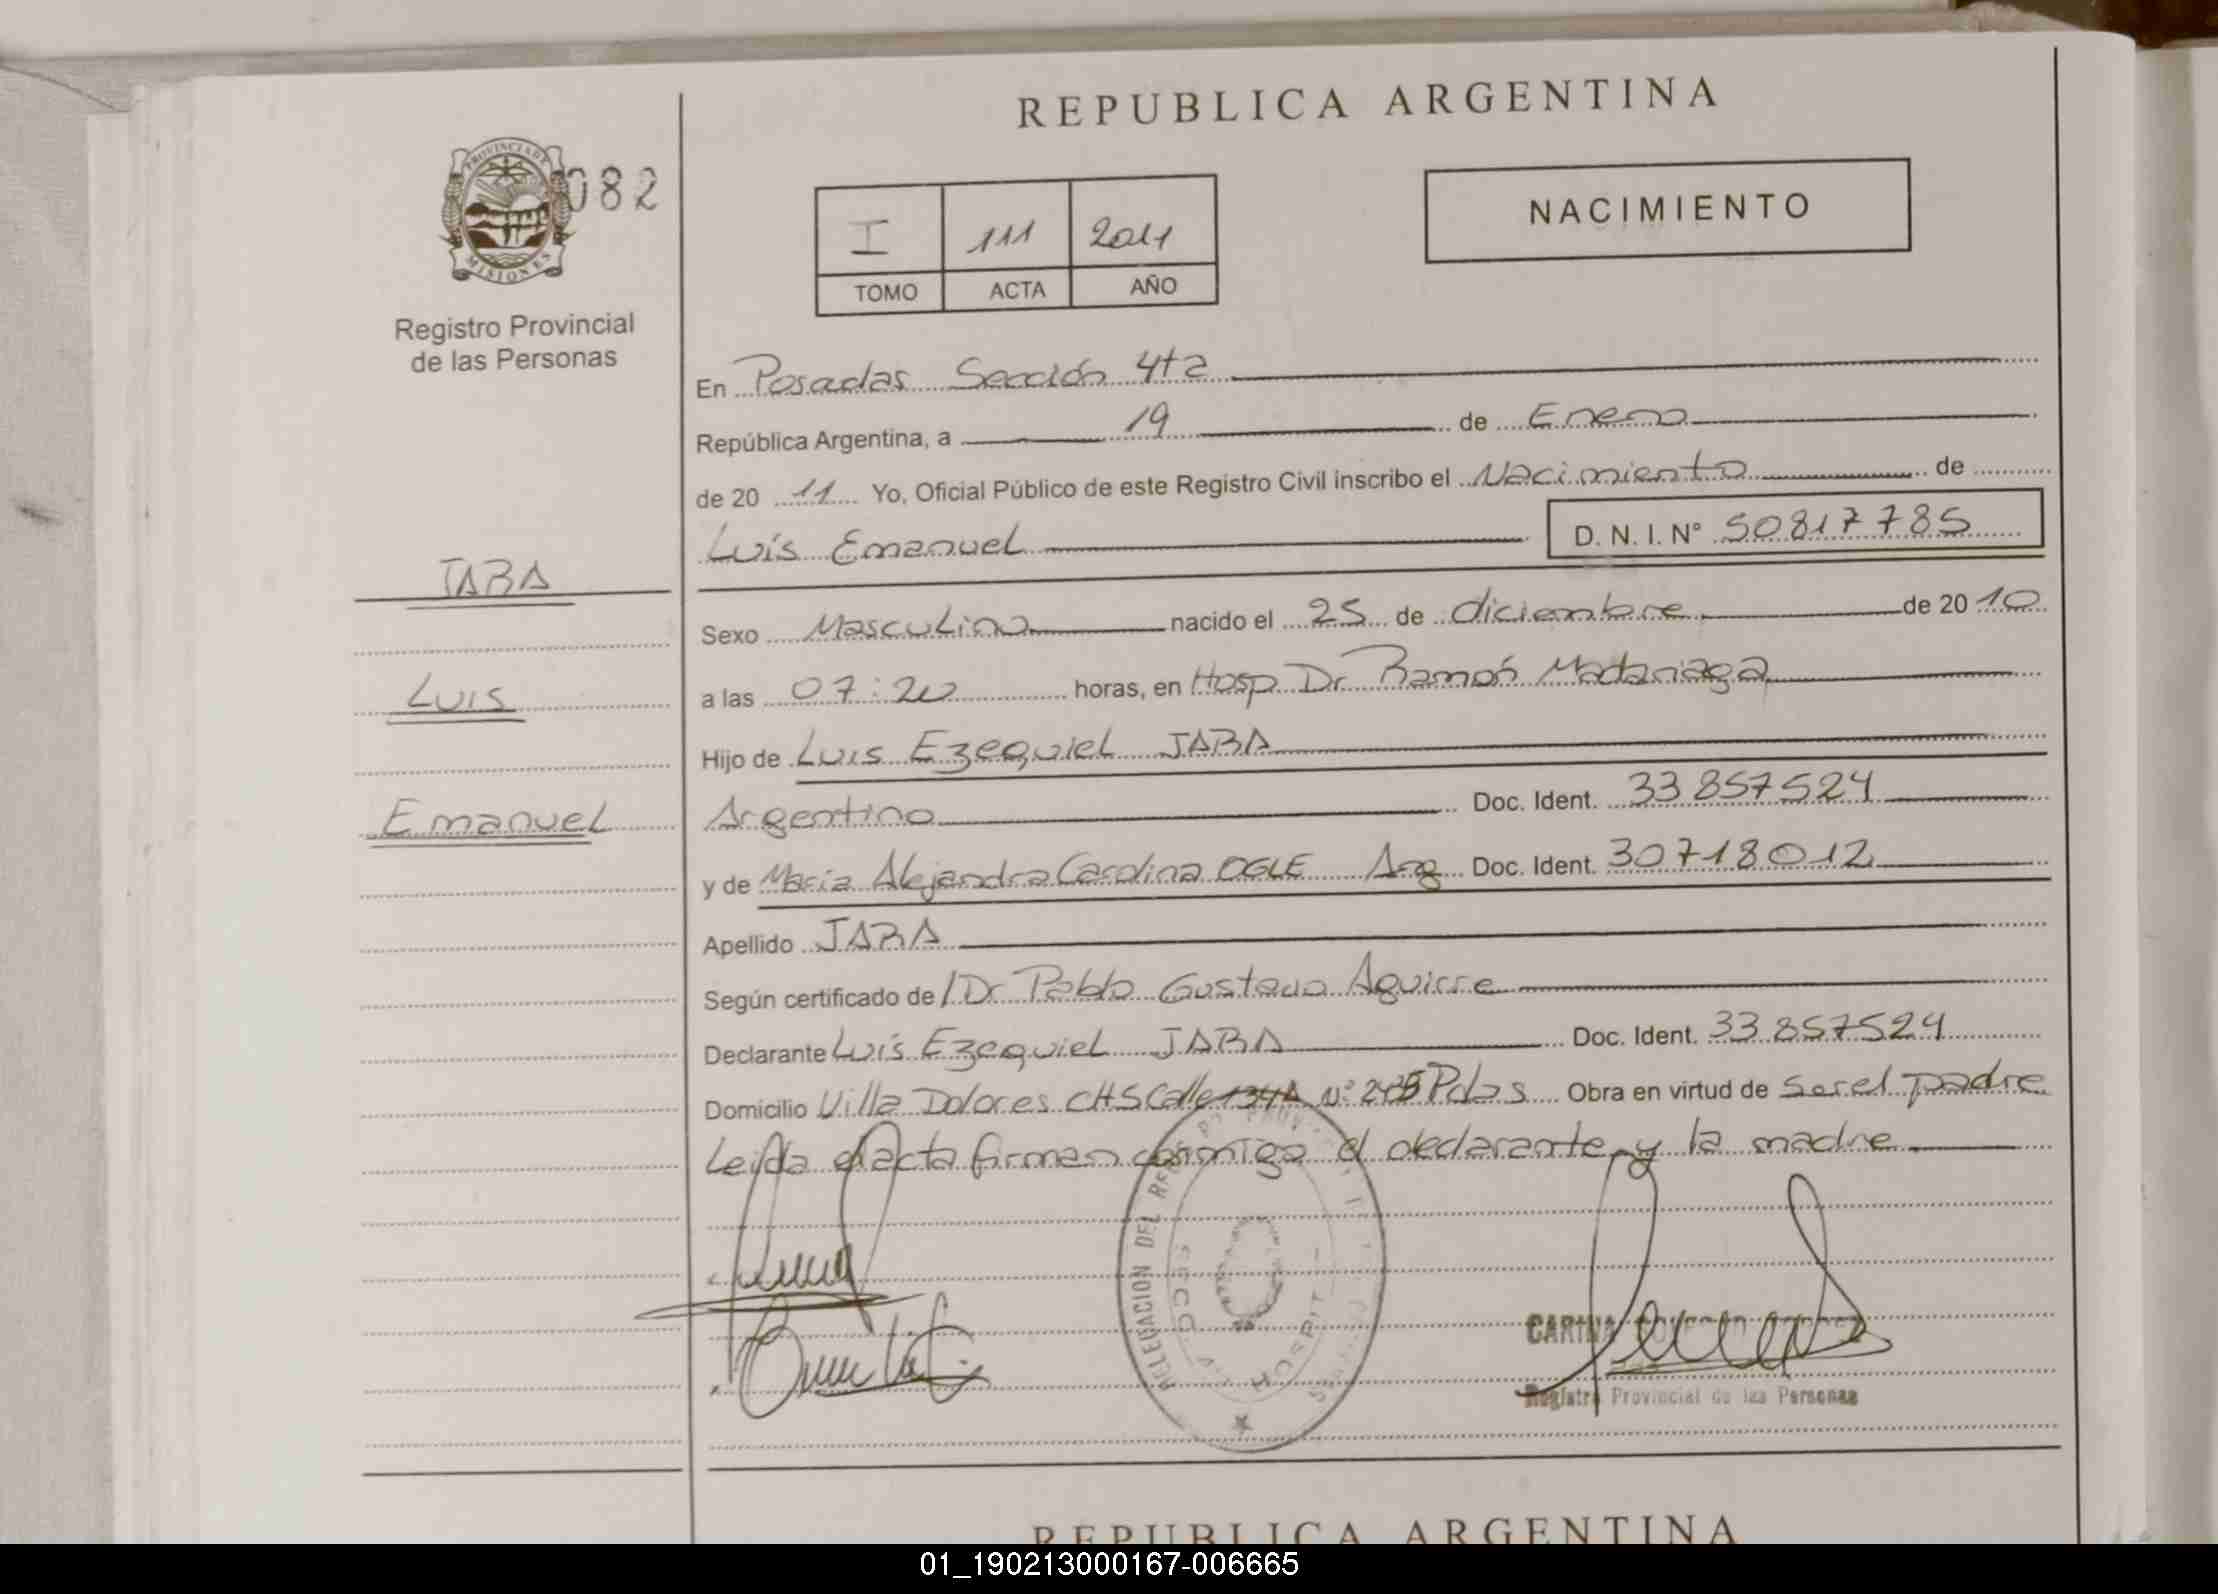 REPUBLICA ARGENTINA
PROVINCIA DE MISIONES
082
Registro Provincial
de las Personas
I 111 2011
TOMO ACTA AÑO
NACIMIENTO
En Posadas Sección 4ta
República Argentina, a 19 de Enero
de 20 11 Yo, Oficial Público de este Registro Civil inscribo el Nacimiento de
Luis Emanuel D. N. I. Nº 50817785
JABA
Luis
Emanuel
Sexo Masculino nacido el 25 de diciembre de 20 10
a las 07:20 horas, en Hosp. Dr. Ramón Madariaga
Hijo de Luis Ezequiel JABA
Argentino Doc. Ident. 33857524
y de Maria Alejandra Carolina OGLE Arg Doc. Ident. 30718012
Apellido JABA
Según certificado de Dr Pablo Gustavo Aguirre
Declarante Luis Ezequiel JABA Doc. Ident. 33.857524
Domicilio Villa Dolores CHS Calle 134A Nº Pdas Obra en virtud de ser el padre
Leida el acta firman conmigo el declarante y la madre
DELEGACION DEL
SECC
HOSPIT
CARINA
Registro Provincial de las Personas
REPUBLICA ARGENTINA
01_190213000167-006665